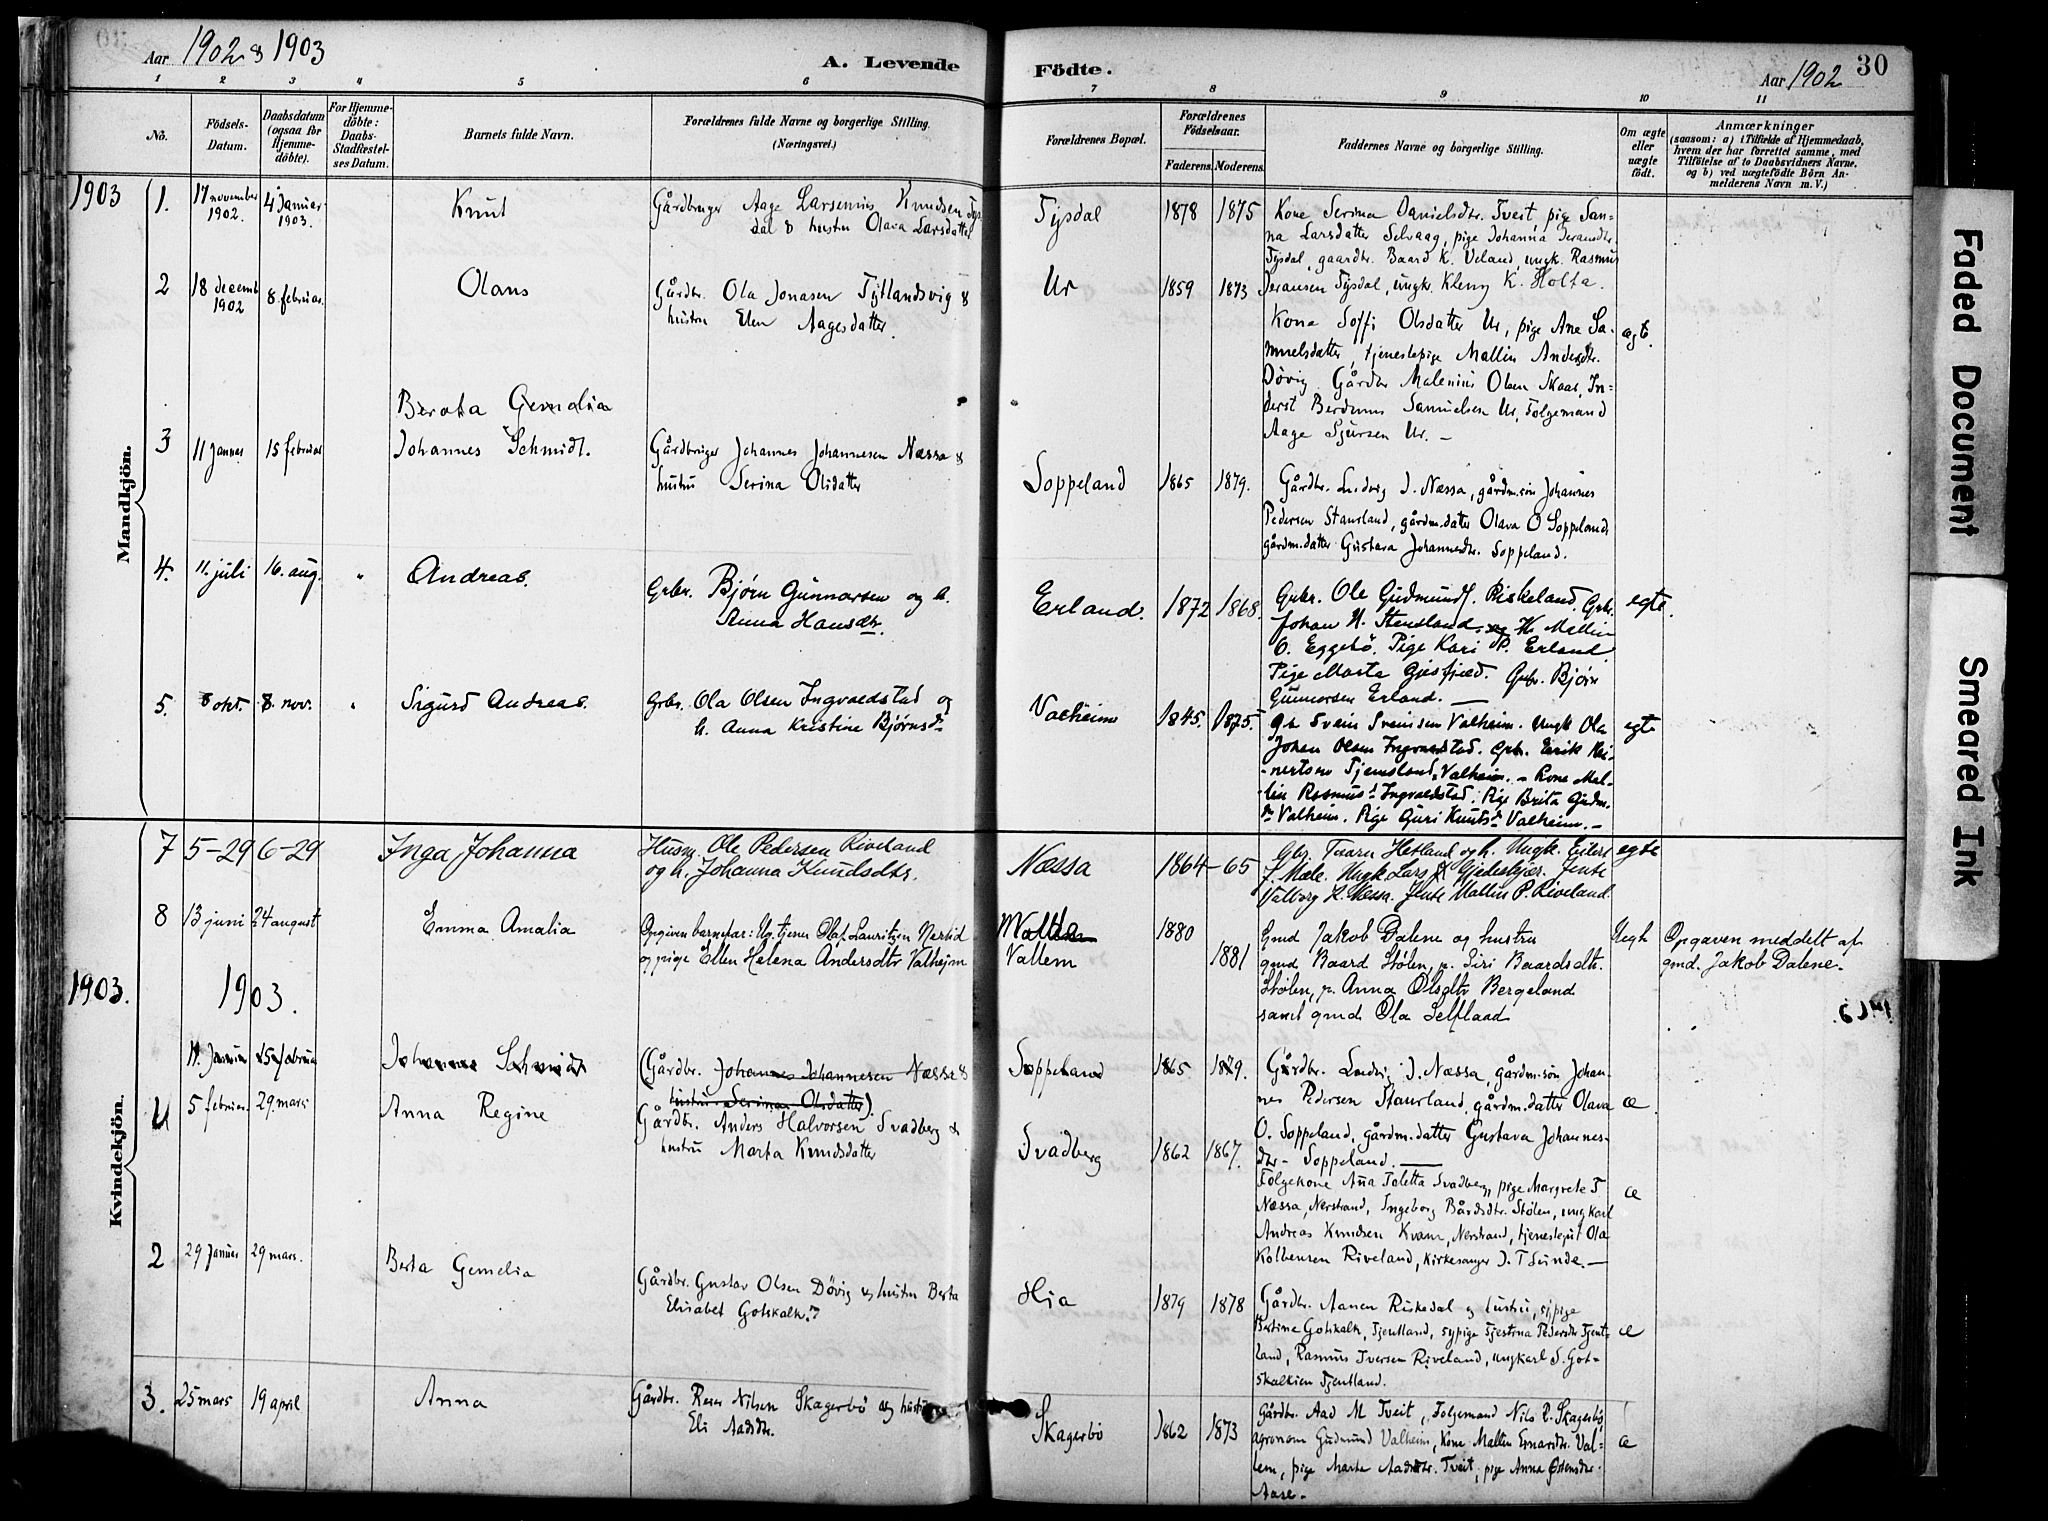 Aar 1902 & 1903
A. Levende
Födte.
Aar 1902
30
1 2 3 4 5 6 7 8 9 10 11
No.
Födsels-Datum.
Daabsdatum (ogsaa for Hjemme-döbte).
For Hjemme-döbte: Daabs-Stadfæstel-ses Datum.
Barnets fulde Navn.
Forældrenes fulde Navne og borgerlige Stilling. (Næringsvei.)
Forældrenes Bopæl.
Forældrenes Födselsaar.
Faderens. Moderens.
Faddernes Navne og borgerlige Stilling.
Om ægte eller uægte födt.
Anmærkninger
(saasom: a) i Tilfælde af Hjemmedaab,
hvem der har forrettet samme, med
Tilföielse af to Daabsvidners Navne,
og b) ved uægtefödte Börn An-
melderens Navn m. V.)
1903
Mandkjön.
1. 17 november 1902. 4 Januar 1903. Knut
Gårdbruger Aage Larsenius Knudsen Tys-
dal & hustru Olava Larsdatter
Tysdal 1878 1875
Kone Serina Danielsdtr. Tveit, pige San-
na Larsdatter Selvaag, pige Johanna
Tysdal, gaardbr. Baard K. Veland, ungk. Rasmus
Tysdal, ungkr. Kleng K. Holta.
2 18 decemb 1902 8. februar. Olaus
Gårdbr. Ola Jonasen Tytlandsvig &
hustru Elen Aagesdatter.
Ur 1859 1873
Kone Soffi Olsdatter Ur, pige Ane Sa-
muelsdatter, tjenestepige Mallin Andersdtr.
Dövig. Gårdbr Malenius Olsen Skaar, In-
derst Samuelsen Ur, Folgemand
Aage Sjursen Ur. -
ægt.
Berta Gemelia
3 11 Januar 15 februar Johannes Schmidt.
Gårdbruger Johannes Johannesen Næssa &
hustru Serina Olsdatter
Soppeland 1865 1879.
Gårdbr. Ludvig J. Næssa, gårdm.søn Johannes
Pedersen Staurland, gårdm.datter Olava O Soppeland
gårdm.datter Gustava Johannesdtr. Soppeland.
4. 11. juli 16. aug. " Andreas.
Grbr. Bjørn Gunnarsen og h.
Anna Hansdtr.
Erland. 1872 1868.
Grbr. Ole Gudmunds. Riskeland. Grbr.
Johan H. Stensland, og K. Mallin
O. Eggebö. Pige Kari P. Erland
Pige Marta Gjesfjæd. Grbr. Bjørn
Gunnarsen Erland. —
egte.
5. 8 okt. 8. nov. " Sigurd Andreas.
Grbr. Ola Olsen Ingvaldstad og
h. Anna Kristine Bjørnsdr
Valheim 1845. 1875.
Gb Svein Sveinsen Valheim. Ungk Ola
Johan Olsen Ingvaldstad. Grbr. Eirik Rei-
-nertsen Tjemsland, Valheim. - Kone Mal-
lin Rasmusd Ingvaldstad. Pige Brita Gudm.
dr Valheim. Pige Guri Knutsdr Valheim. -
egte
Kvindekjön.
7 5-29 6-29 Inga Johanna
Husm. Ole Pedersen Riveland
og h. Johanna Knudsdtr.
Næssa 1864-65
Gbr Hetland og h. Ungk. Eilert
J. Mæle. Ungk Lars Gjedeskjær. Jente
Valborg K. Næssa. Jente Mallin P. Riveland
egte
8 13 juni 24 august Emma Amalia
Opgiven barnefar: Ug. tjener Olaf Lauritzen
og pige Ellen Helena Andersdtr Valheim
Vallem 1880 1881
Gmd Jakob Dalene og hustru
gmd Baard Stølen, p. Siri Baardsdtr.
Stølen, p. Anna Olsdtr Bergeland
samt gmd. Ola Selfland
Uegt
Opgaven meddelt af
gmd. Jakob Dalene.
1903.
1903.
11. Januar 15 februar Johannes Schmidt
(Gårdbr. Johannes Johannesen Næssa &
hustru Serina Olsdatter).
Soppeland 1865. 1879.
Gårdbr. Ludvig J. Næssa, gårdm.søn Johan-
nes Pedersen Staurland, gårdm.datter Olava
O. Soppeland, gårdm.datter Gustava Johannes-
dtr- Soppeland. —
æ.
5 februar. 29. mars Anna Regine
Gårdbr. Anders Halvorsen Svadberg &
hustru Marta Knudsdatter
Svadberg 1862 1867.
Folgekone Ana Toletta Svadberg, pige Margrete T
Næssa, Nerstrand, Ingeborg Bårdsdtr. Stølen, ungkarl
Andreas Knudsen Kvam, Nerstrand, tjenestegut Ola
Kolbensen Riveland, kirkesanger J. T Sunde. —
æ
2 29 Januar 29 mars. Berta Gemelia
Gårdbr. Gustav Olsen Dövig og hustru Berta
Elisabet Gotskalk.?
Hja 1879 1878
Gårdbr. Aanen Riskedal og hustru, sypige
Bertine Gotskalk, Tjentland, sypige Tjestina Pedersdtr Tjent-
land, Rasmus Iversen Riveland, ungkarl S. Got-
skalksen Tjentland.
æ
3. 25 mars 19 april Anna
Gårdbr. Nilsen Skagerbö og hustru
Eli Aadsdtr.
Skagerbö 1862 1873
Gårdbr. Aad M Tveit, Folgemand Nils R. Skagerbö,
agronom Gudmund Valheim, Kone Mallin Valhem, pige Marta Aadsdtr. Tveit, pige Anna Østensdtr.
Aase.
æ
Faded Document
Smeared Ink